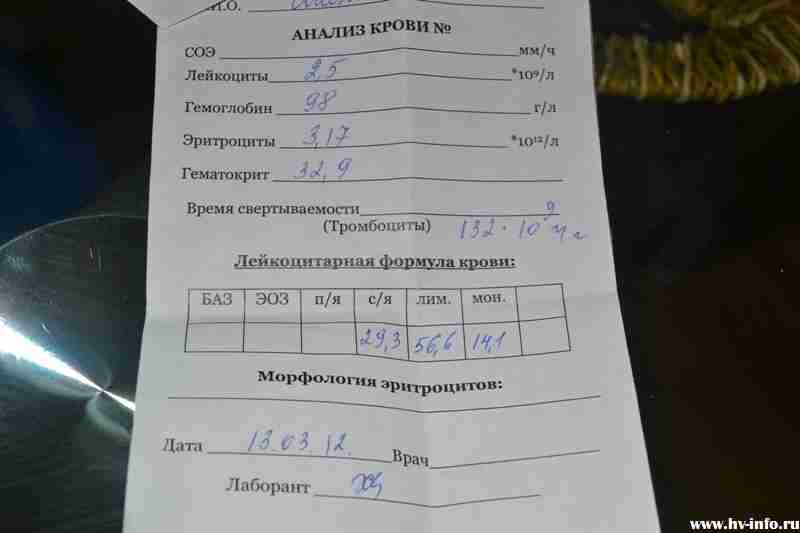 И.О.
АНАЛИЗ КРОВИ №
СОЭ мм/ч
Лейкоциты 2,5 *10⁹/л
Гемоглобин 98 г/л
Эритроциты 3,17 *10¹²/л
Гематокрит 32,9
Время свертываемости
(Тромбоциты) 132 · 10⁹
Лейкоцитарная формула крови:
БАЗ ЭОЗ п/я с/я лим. мон.
29,3 56,6 14,1
Морфология эритроцитов:
Дата 13.03.12. Врач
Лаборант
www.hv-info.ru